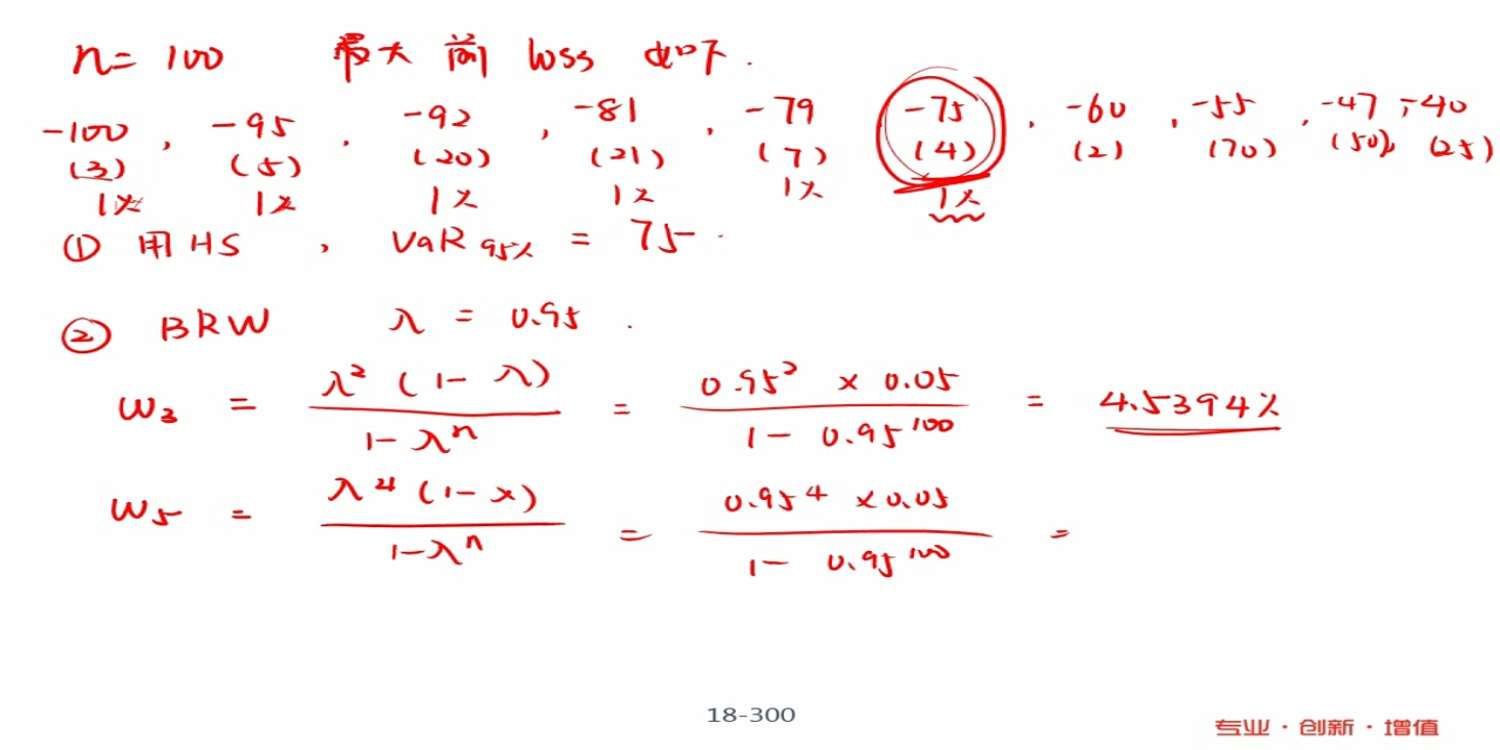 n = 100 最大前 loss 如下.
-100, -95, -92, -81, -79, -75, -60, -55, -47, -40
(3) (5) (20) (21) (7) (4) (2) (70) (50), (25)
1% 1% 1% 1% 1% 1%
① 用 HS , VaR 95% = 75.
② BRW λ = 0.95 .
w₃ = λ² (1 - λ) / 1 - λⁿ = 0.95² × 0.05 / 1 - 0.95¹⁰⁰ = 4.5394%
w₅ = λ⁴ (1 - λ) / 1 - λⁿ = 0.95⁴ × 0.05 / 1 - 0.95¹⁰⁰ =
18-300
专业·创新·增值